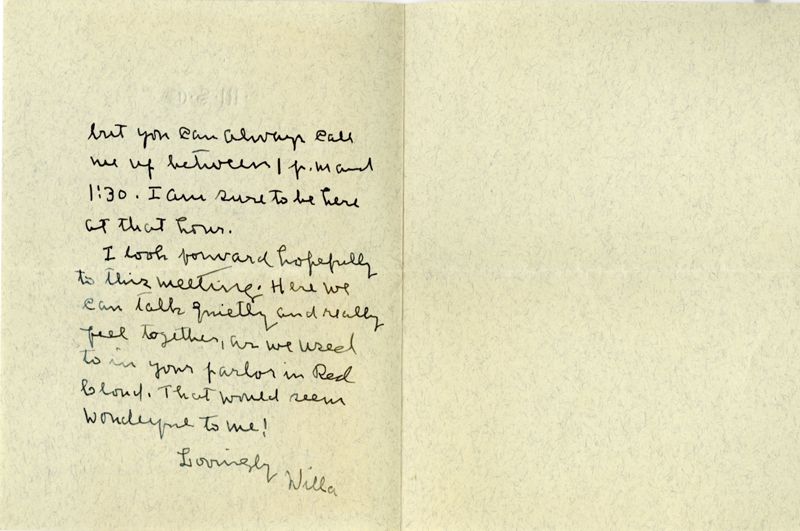 but you can always call
me up between 1 p.m and
1:30. I am sure to be here
at that hour.
I look forward hopefully
to this meeting. Here we
can talk quietly and really
feel together, as we used
to in your parlor in Red
Cloud. That would seem
wonderful to me!
Lovingly
Willa